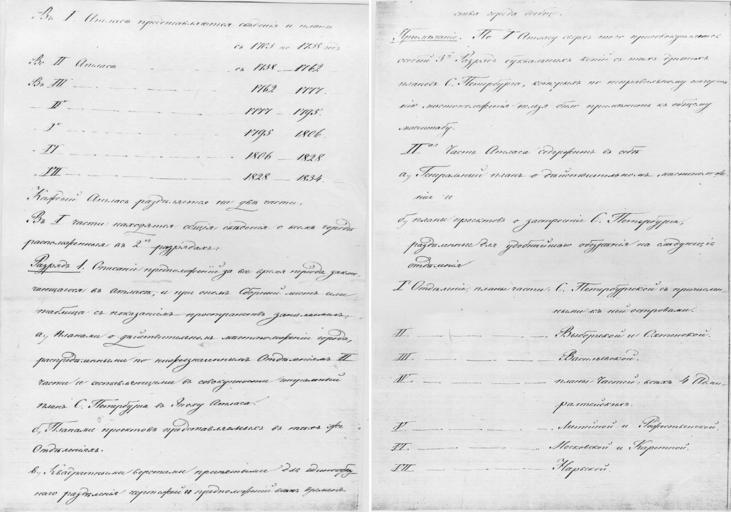 Въ I Атласѣ представляются сведенія и планы
съ 1703 по 1738 годъ
Во II Атласѣ съ 1738 — 1762
Въ III 1762 — 1777.
IV 1777 — 1795.
V 1795 — 1806.
VI 1806 — 1828
VII 1828 — 1834.
Каждый Атласъ раздѣляется на двѣ части.
Въ I части находятся общія сведенія о всемъ городѣ
расположенныя въ 2хъ разрядахъ:
Разрядъ 1. Описаніе предположеній за все время періода заклю-
чающагося въ Атласѣ, и при ономъ Сборный листъ или
таблица съ показаніемъ пространствъ занимаемыхъ:
а, Планами о дѣйствительномъ мѣстоположеніи города,
распредѣленными по Отдѣленіямъ II
части и составляющими въ совокупности
планъ С. Петербурга въ Эпоху Атласа.
б, Планами проектовъ представляемыхъ въ тѣхъ же
Отдѣленіяхъ.
в, Квадратными верстами принятыми для
наго раздѣленія чертежей и предположеній всѣхъ временъ
города
Примѣчаніе. По I Атласу сверхъ того присовокупляется
особый 3й Разрядъ копій съ тѣхъ
плановъ С. Петербурга, которыхъ по неправильному
мѣстоположенія нельзя было примѣнить къ общему
масштабу.
IIая Часть Атласа содержитъ въ себѣ
а, Генеральный планъ о дѣйствительномъ мѣстополо-
женіи и
б, планы проектовъ о застроеніи С. Петербурга,
раздѣленные для удобнѣйшаго обозрѣнія на слѣдующія
отдѣленія
I Отдѣленіе, планы части: С. Петербургской съ
къ ней островами.
II Выборгской и Охтенской.
III Васильевской.
IV планы Частей: всѣхъ 4 Адми-
ралтейскихъ.
V Литейной и Рожественской
VI Московской и Каретной.
VII Нарвской.